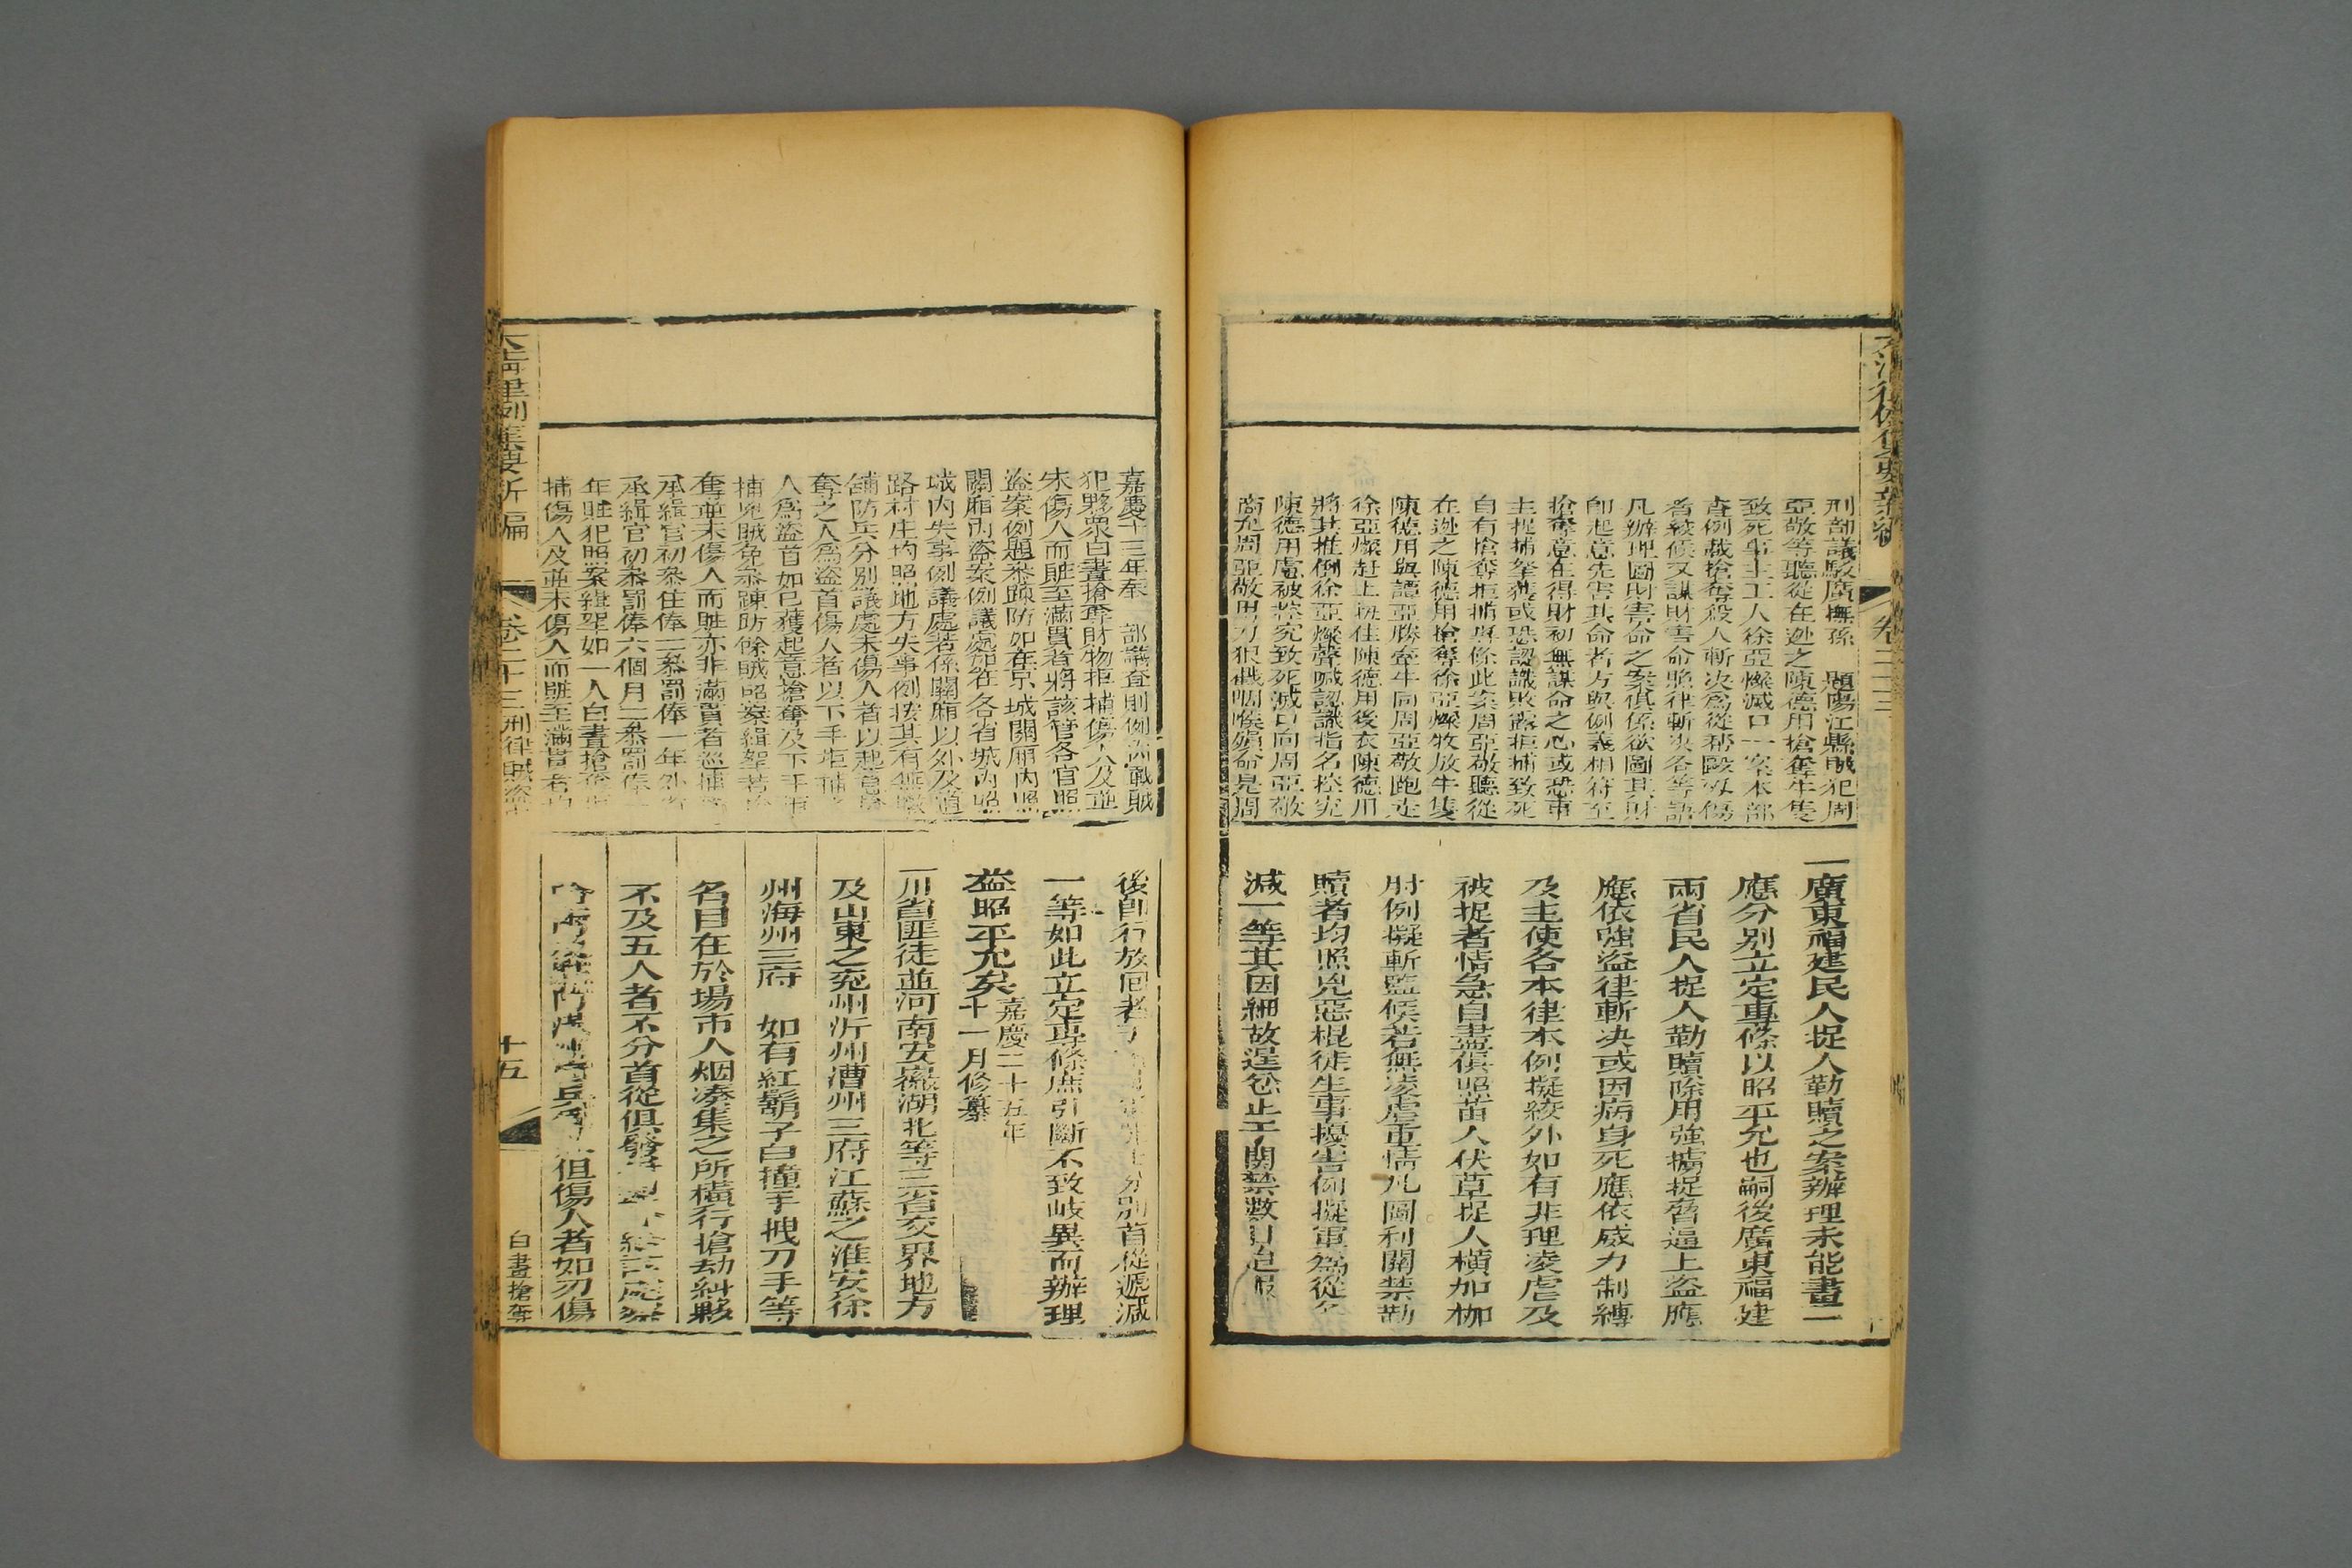 大清律例集要新編
卷二十三
刑部議駁廣撫孫 題陽江縣賊犯周
亞敬等聽從在逃之陳德用搶奪牛隻
致死事主工人徐亞燦滅口一案本部
查例載搶奪殺人斬決為從幫毆刃傷
者絞候又謀財害命照律斬決各等語
凡辦理圖財害命之案俱係欲圖其財
即起意先害其命者方與例義相符至
搶奪意在得財初無謀命之心或恐事
主捉捕拏獲或恐認識敗露拒捕致死
自有搶奪拒捕專條此案周亞敬聽從
在逃之陳德用搶奪徐亞燦牧放牛隻
陳德用與譚亞勝牽牛同周亞敬跑走
徐亞燦赶上扭住陳德用後衣陳德用
將其推倒徐亞燦聲喊認識指名控究
陳德用慮被控究致死滅口向周亞敬
商允周亞敬用刀狠戳咽喉殞命是周
一廣東福建民人捉人勒贖之案辦理未能畫一
應分別立定專條以昭平允也嗣後廣東福建
兩省民人捉人勒贖除用強擄捉脅逼上盜應
應依強盜律斬決或因病身死應依威力制縛
及主使各本律本例擬絞外如有非理凌虐及
被捉者情急自盡俱照苗人伏草捉人橫加枷
肘例擬斬監候若無凌虐重情凡圖利關禁勒
贖者均照兇惡棍徒生事擾害例擬軍為從各
減一等其因細故逞忿止于關禁數日追服
嘉慶十三年奉 部議查則例內載賊
犯夥眾白晝搶奪財物拒捕傷人及並
未傷人而贓至滿貫者將該管各官照
盜案例題參疎防如在京城關廂內照
關廂內盜案例議處如在各省城內照
城內失事例議處若係關廂以外及道
路村庄均照地方失事例按其有無墩
舖防兵分別議處未傷人者以起意搶
奪之人為盜首傷人者以下手拒捕
人為盜首如已獲起意搶奪及下手拒
捕兇賊免參踈防餘賊照案緝拏若搶
奪並未傷人而贓亦非滿貫者巡捕
承緝官初參住俸二參罰俸一年外省
承緝官初參罰俸六個月二參罰俸
年賍犯照案緝拏如一人白晝搶奪
捕傷人及並未傷人而贓至滿貫者均
後即行放回者 分別首從遞減
一等如此立定專條庶引斷不致岐異而辦理
益昭平允矣 嘉慶二十五年
十一月修纂
一川省匪徒並河南安徽湖北等三省交界地方
及山東之兗州沂州曹州三府江蘇之淮安徐
州海州三府 如有紅鬍子白撞手拽刀手等
名目在於場市人烟湊集之所橫行搶劫糾夥
不及五人者不分首從俱發
但傷人者如刃傷
大清律例集要新編
卷二十三 刑律賊盜
十五
白晝搶奪